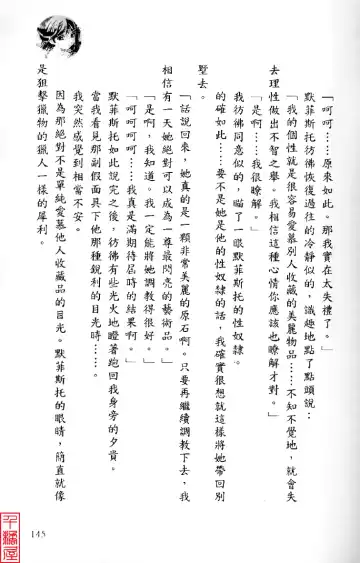 「呵呵……原來如此。那我實在太失禮了。」
默菲斯托彷彿恢復過往的冷靜似的，識趣地點了點頭說：
「我的個性就是很容易愛慕別人收藏的美麗物品……不知不覺地，就會失
去理性做出不智之舉。我相信這種心情你應該也瞭解才對。」
「是啊……我很瞭解。」
我彷彿同意似的，瞄了一眼默菲斯托的性奴隸。
的確如此……要不是她是他的性奴隸的話，我確實很想就這樣將她帶回別
墅去。
「話說回來，她真的是一顆非常美麗的原石啊。只要再繼續調教下去，我
相信有一天她絕對可以成為一尊最閃亮的藝術品。」
「是啊，我知道。我一定能將她調教得很好。」
「呵呵呵呵……我真是滿期待屆時的結果啊。」
默菲斯托如此說完之後，彷彿有些光火地瞪著跑回我身旁的夕貴。
當我看見那副假面具下他那種銳利的目光時……。
我突然感覺到相當不安。
因為那絕對不是單純愛慕他人收藏品的目光。默菲斯托的眼睛，簡直就像
是狙擊獵物的獵人一樣的犀利。
145